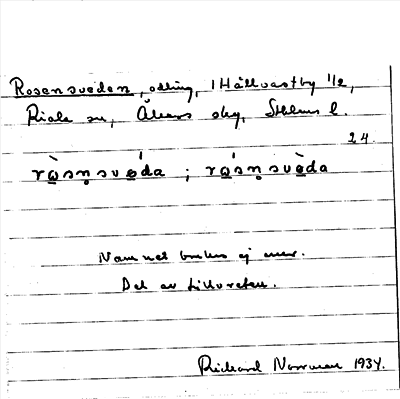 Rosensveden, odling, i Hållvastby 1/2,
Riala sn, Åkers skg, Sthlms l.
24.
rò̱sṇsvé̱da ; ró̱sṇsvè̱da
Namnet brukes ej mer.
Del av
Rickard Norrman 1934.